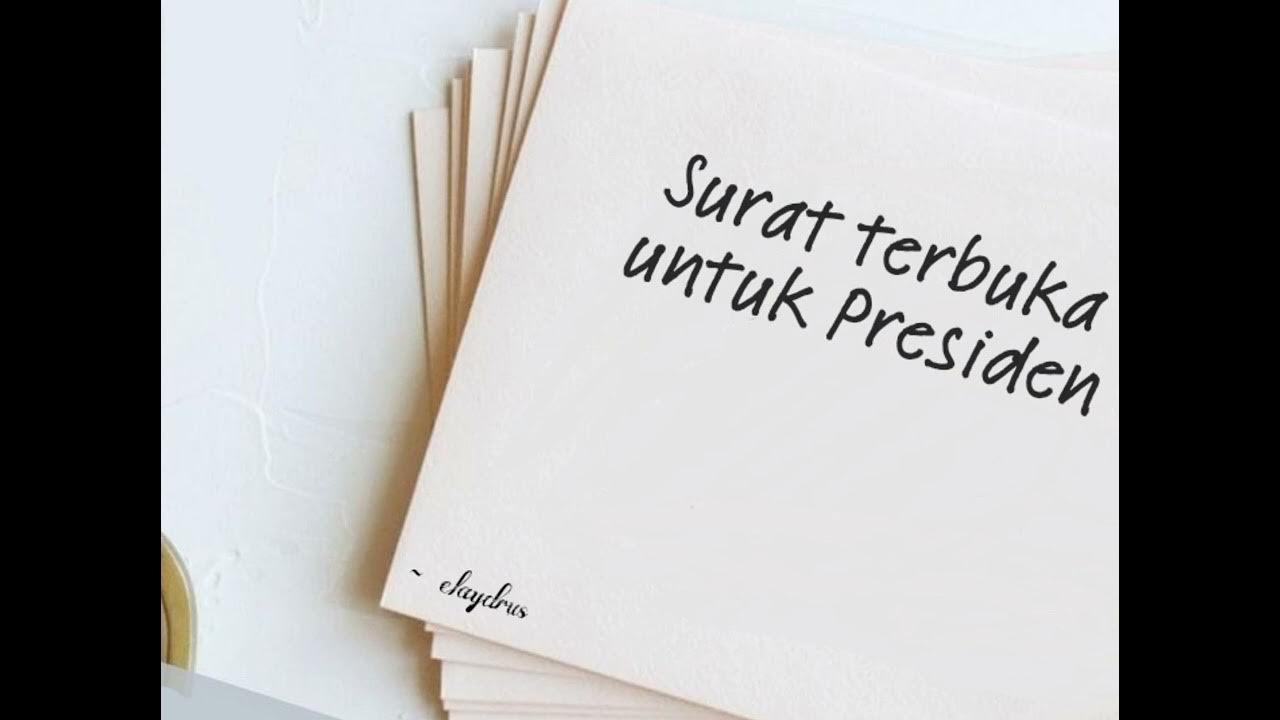 Surat terbuka
untuk Presiden
~ elaydrus